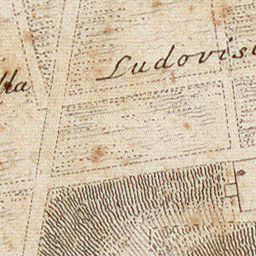 Ludovisi
lla